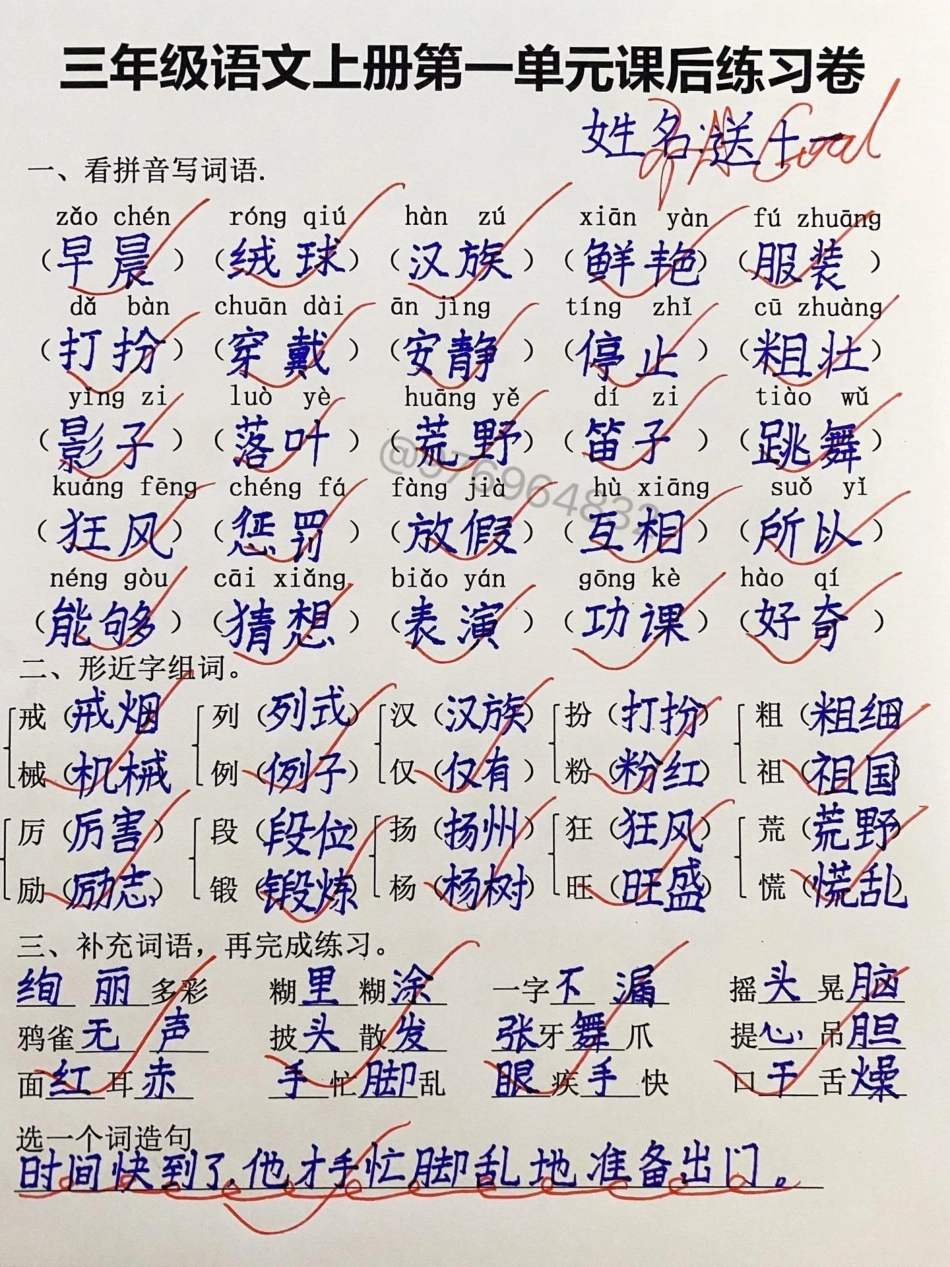 三年级语文上册第一单元课后练习卷
姓名:送十一
Good
一、看拼音写词语.
zǎo chén róng qiú hàn zú xiān yàn fú zhuāng
(早晨) (绒球) (汉族) (鲜艳) (服装)
dǎ bàn chuān dài ān jìng tíng zhǐ cū zhuàng
(打扮) (穿戴) (安静) (停止) (粗壮)
yǐng zi luò yè huāng yě dí zi tiào wǔ
(影子) (落叶) (荒野) (笛子) (跳舞)
kuáng fēng chéng fá fàng jià hù xiāng suǒ yǐ
(狂风) (惩罚) (放假) (互相) (所以)
néng gòu cāi xiǎng biǎo yán gōng kè hào qí
(能够) (猜想) (表演) (功课) (好奇)
二、形近字组词。
戒(戒烟) 列(列式) 汉(汉族) 扮(打扮) 粗(粗细
械(机械 例(例子) 仅(仅有) 粉(粉红) 祖(祖国)
厉(厉害) 段(段位) 扬(扬州) 狂(狂风) 荒(荒野
励(励志) 锻(锻炼 杨(杨树) 旺(旺盛) 慌(慌乱
三、补充词语，再完成练习。
绚丽多彩 糊里糊涂 一字不漏 摇头晃脑
鸦雀无声 披头散发 张牙舞爪 提心吊胆
面红耳赤 手忙脚乱 眼疾手快 口干舌燥
选一个词造句
时间快到了,他才手忙脚乱地准备出门。